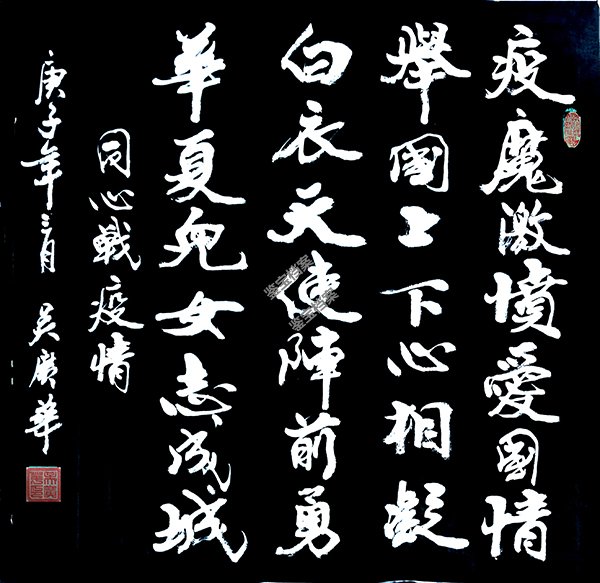 疫魔激憤愛國情
舉國上下心相凝
白衣天使陣前勇
華夏兒女志成城
同心戰疫情
庚子年三月 吳廣華